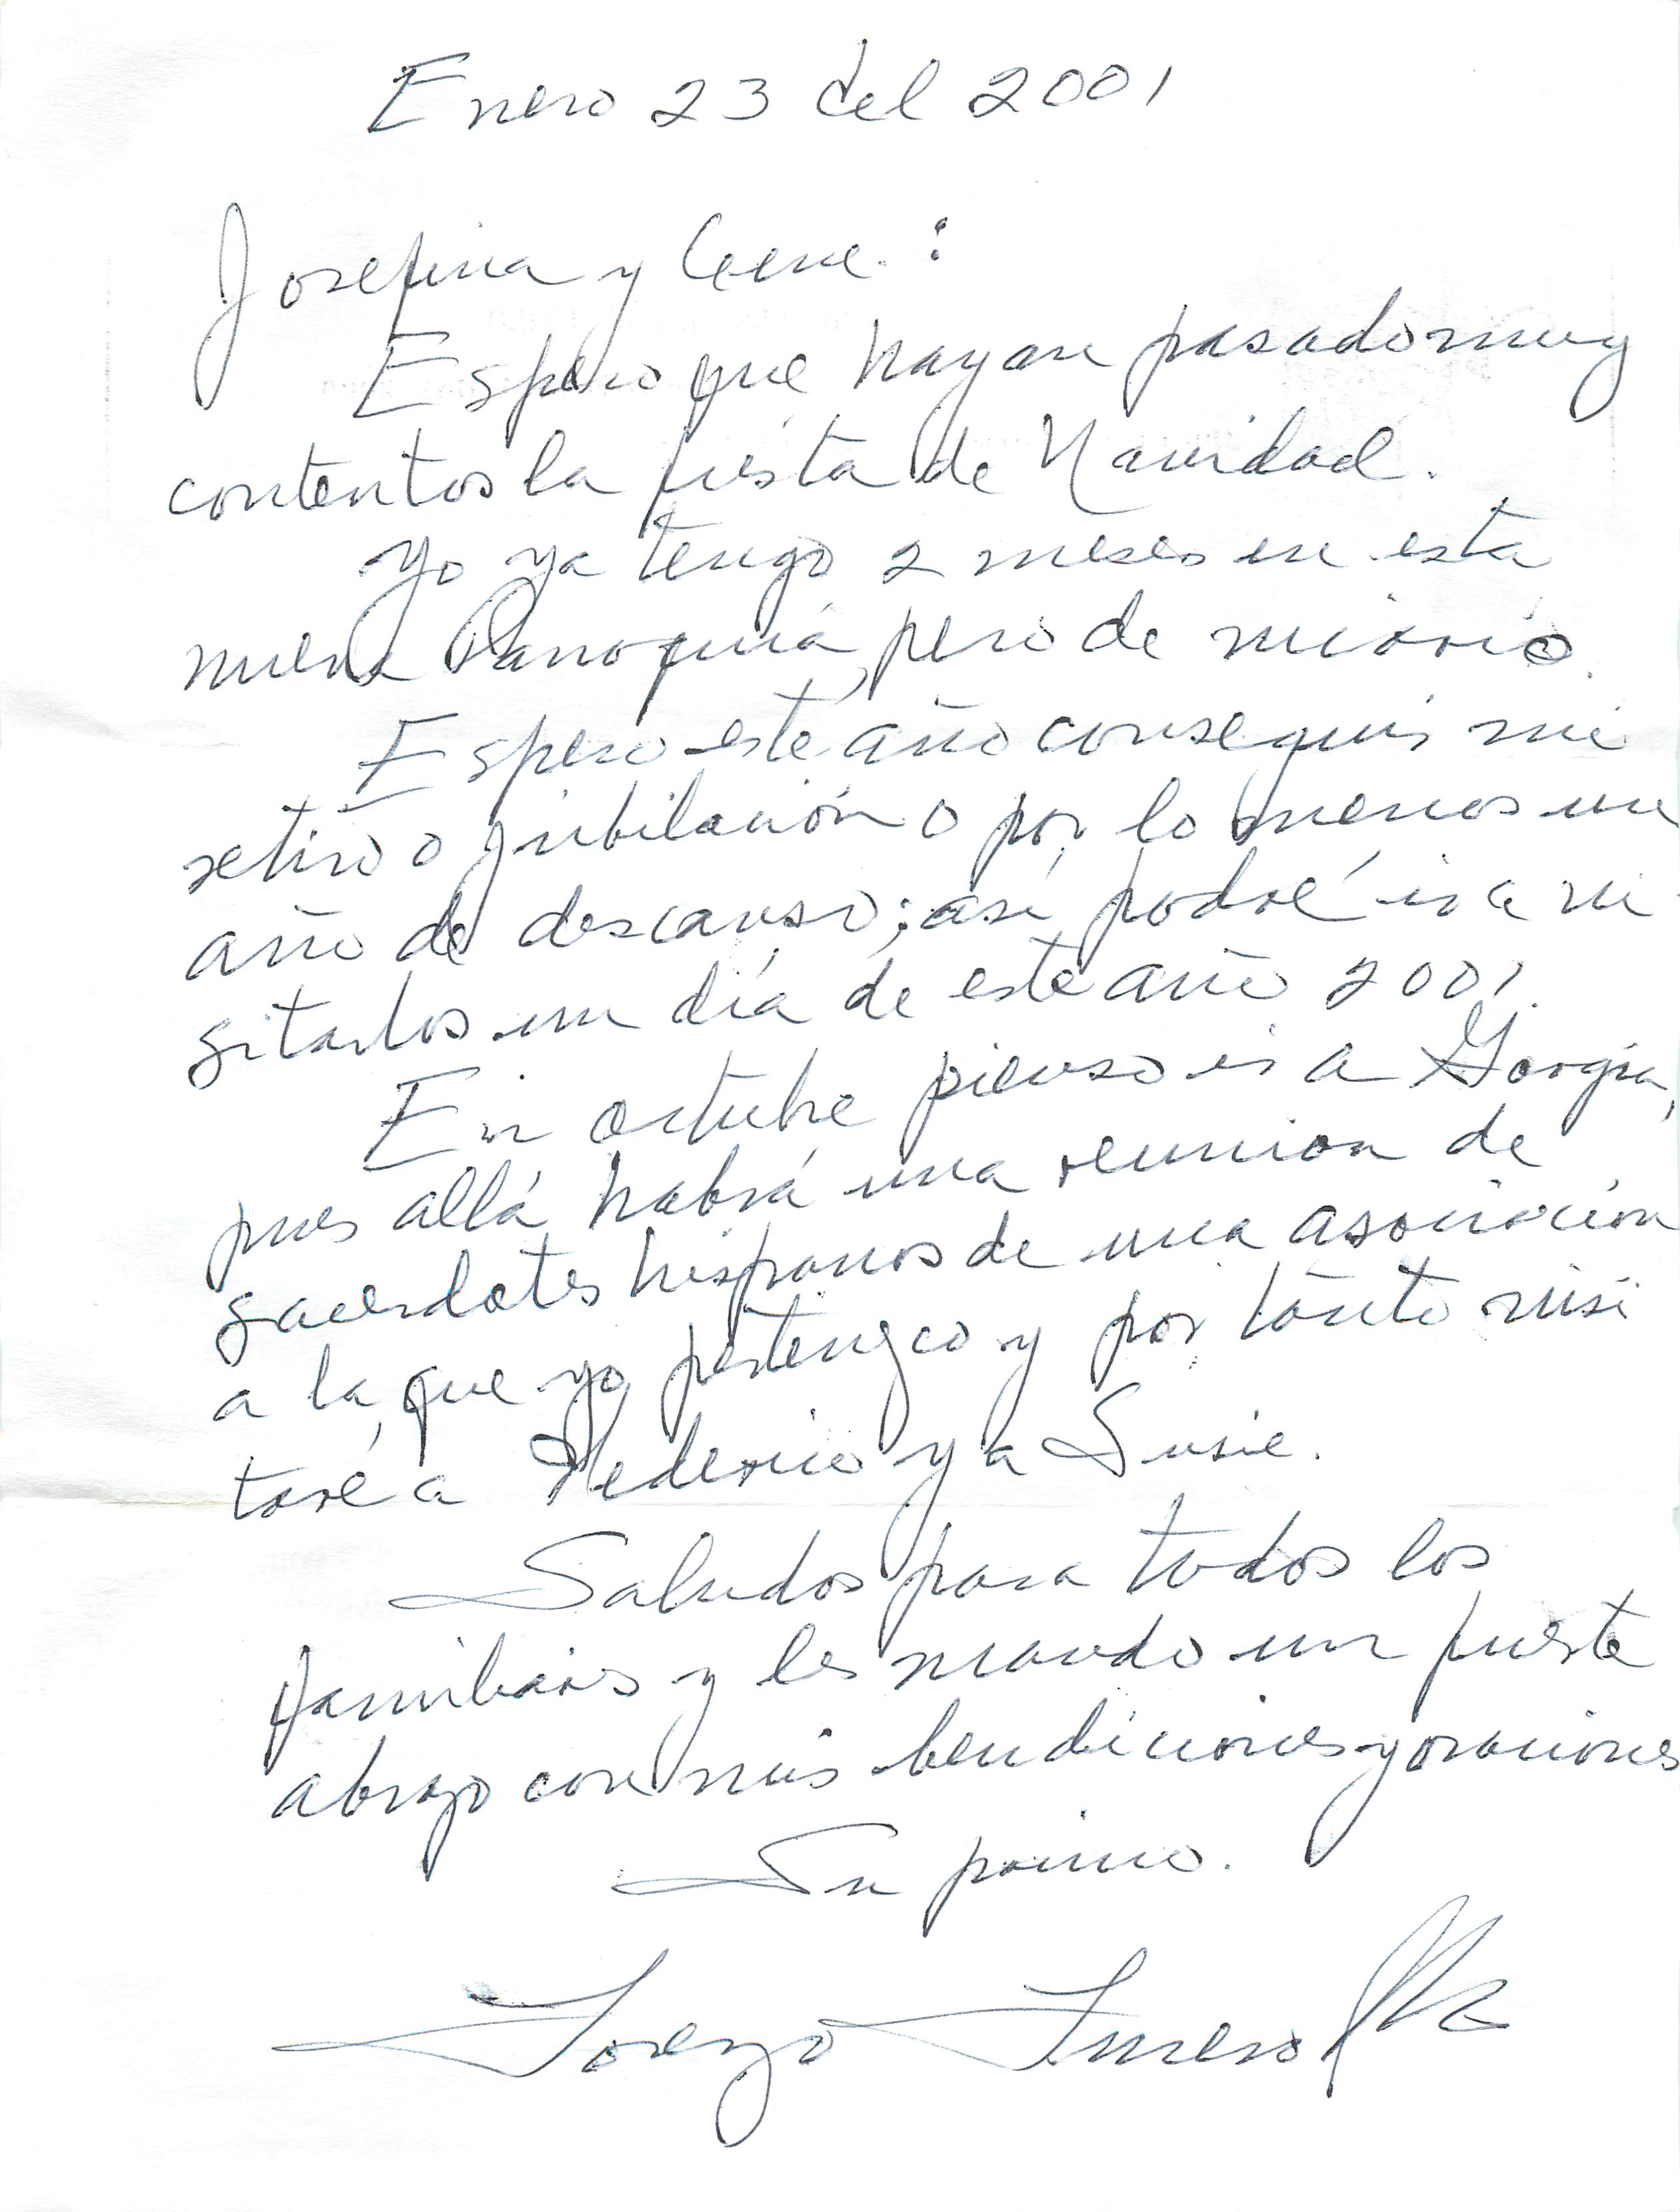 Enero 23 del 2001
Josefina y Gene. :
Espero que hayan pasado muy
contentos la fiesta de Navidad.
Yo ya tengo 2 meses en esta
nueva Parroquia, pero de
Espero este año conseguir mi
retiro o jubilación o por lo menos un
año de descanso; así podré ir a vi
sitarlos un día de este año 2001.
En octubre pienso ir a Gorgia,
pues allá habrá una reunion de
sacerdotes hispanos de una asociación
a la que yo pertenezco y por tanto visi
taré a Federico y a Susie.
Saludos para todos los
familiares y les mando un fuerte
abrazo con mis bendiciones y oraciones
Su primo.
Lorenzo